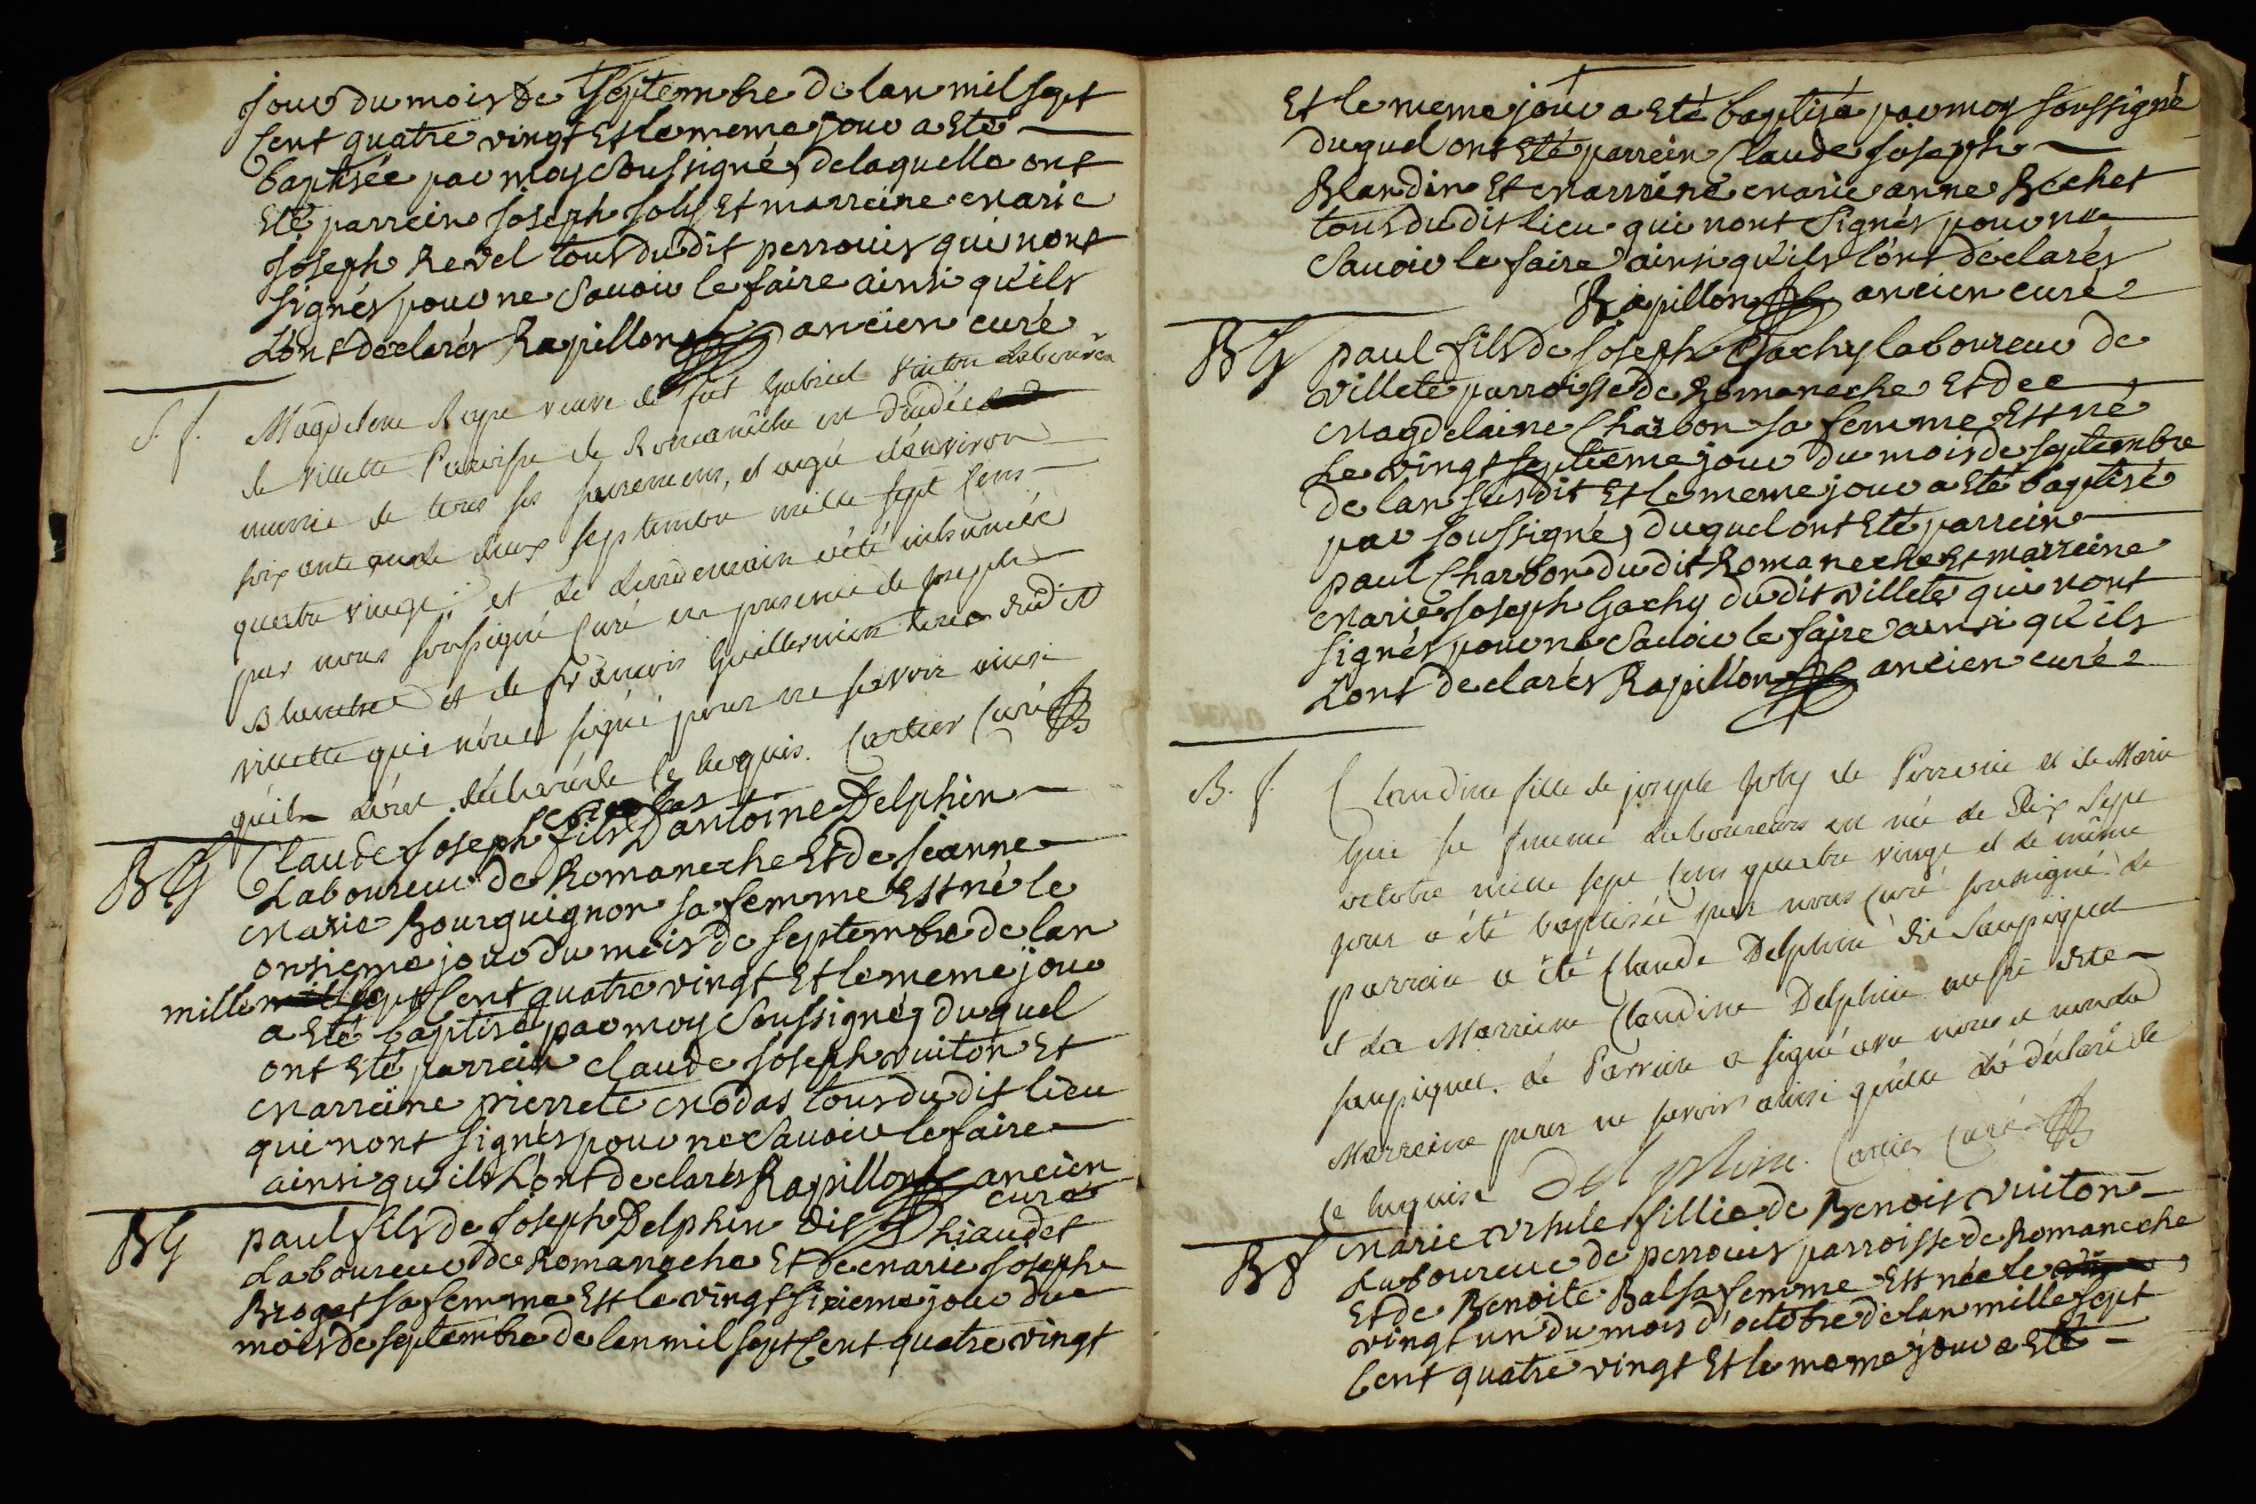 jour du mois de Septembre de lan mil sept
Cent quatre vingt Et le meme jour a Eté
baptisée par moy Soussigné, de laquelle ont
Eté parrein joseph joly Et marreine marie
joseph Revel tous du dit perrouis qui nont
signés pour ne Savoir le faire ainsi qu'ils
Lont déclarés Rapillon ancien curé
S. f. Magdelene veuve de fut Gabriel Vuiton Laboureur
de Villette Paroisse de Romanêche est décédée
munie de tous ses sacremens, et agée d'environ
soixante ans le deux septembre mille sept Cens
quatre vingt; et le lendemain a été inhumée
par nous soussigné Curé en presence de joseph
et de françois Guillermin tous dudit
villette qui n'ont signé pour ne savoir ainsi
qu'ils l'ont déclaré de ce requis. Cartier Curé
BG Claude Joseph fils D'antoine Delphin
Laboureur de Romaneche Et de jeanne
Marie Bourguignon sa femme Est né le
onsieme jour du mois de septembre de lan
mille sept Cent quatre vingt Et le meme jour
a Eté baptisé par moy Soussigné, du quel
ont Eté parrein claude joseph vuiton Et
Marreine pierrete modas tous du dit lieu
qui nont signés pour ne savoir le faire
ainsi qu'ils Lont declarés Rapillon ancien
curé
BG paul fils de joseph Delphin dit Chiaudet
Laboureur de Romaneche Et de marie joseph
Broget sa femme Est le vingt sixieme jour du
mois de septembre de lan mil sept Cent quatre vingt
Et le meme jour a Eté baptisé par moy soussigné
duquel ont Eté parrein Claude joseph
Blandin Et marreine marie anne Bechet
tous du dit lieu qui nont Signés pour ne
Savoir le faire ainsi qu'ils l'ont déclarés
Rapillon ancien curé
BG paul fils de joseph Gachy laboureur de
Villete parroisse de Romaneche Et de
Magdelaine Charbon sa femme Est né
Le vingt septieme jour du mois de septembre
de lan susdit Et le meme jour a Eté baptisé
par soussigné, duquel ont Eté parrein
paul Charbon du dit Romaneche Et marreine
Marie joseph Gachy du dit Villete qui nont
signés pour ne Savoir le faire ainsi qu'ils
Lont declarés Rapillon ancien curé
B. f. Claudine fille de joseph joly de Perrouis et de Marie
sa femme laboureurs est née le Dix Sept
octobre mille sept Cens quatre vingt et le même
jour a été baptisée par nous Curé soussigné. Le
parrain a été Claude Delphin dit Saupiquet
et La Marreine Claudine Delphin aussi dite
saupiquet. Le Parrain a signé avec nous et non la
Marreine pour ne savoir ainsi qu'elle l'a déclaré de
ce enquise Delphin. Cartier Curé
Bf Marie Ursule fillie de Benoit Vuiton
Laboureur de perrouis parroisse de Romaneche
Et de Benoite Bal sa femme Est née le
vingt un du mois d'octobre de lan mille sept
Cent quatre vingt Et le meme jour a Eté